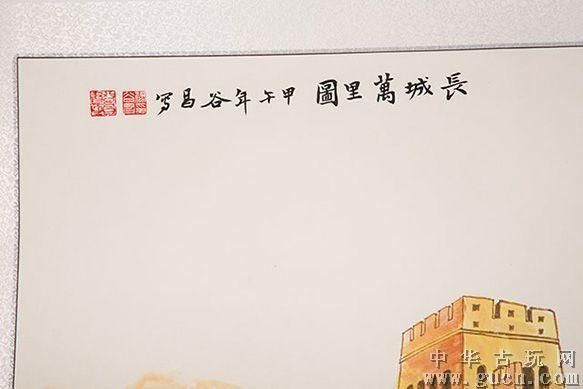 長城萬里圖 甲午年谷昌寫
中华古玩网
www.gucn.com